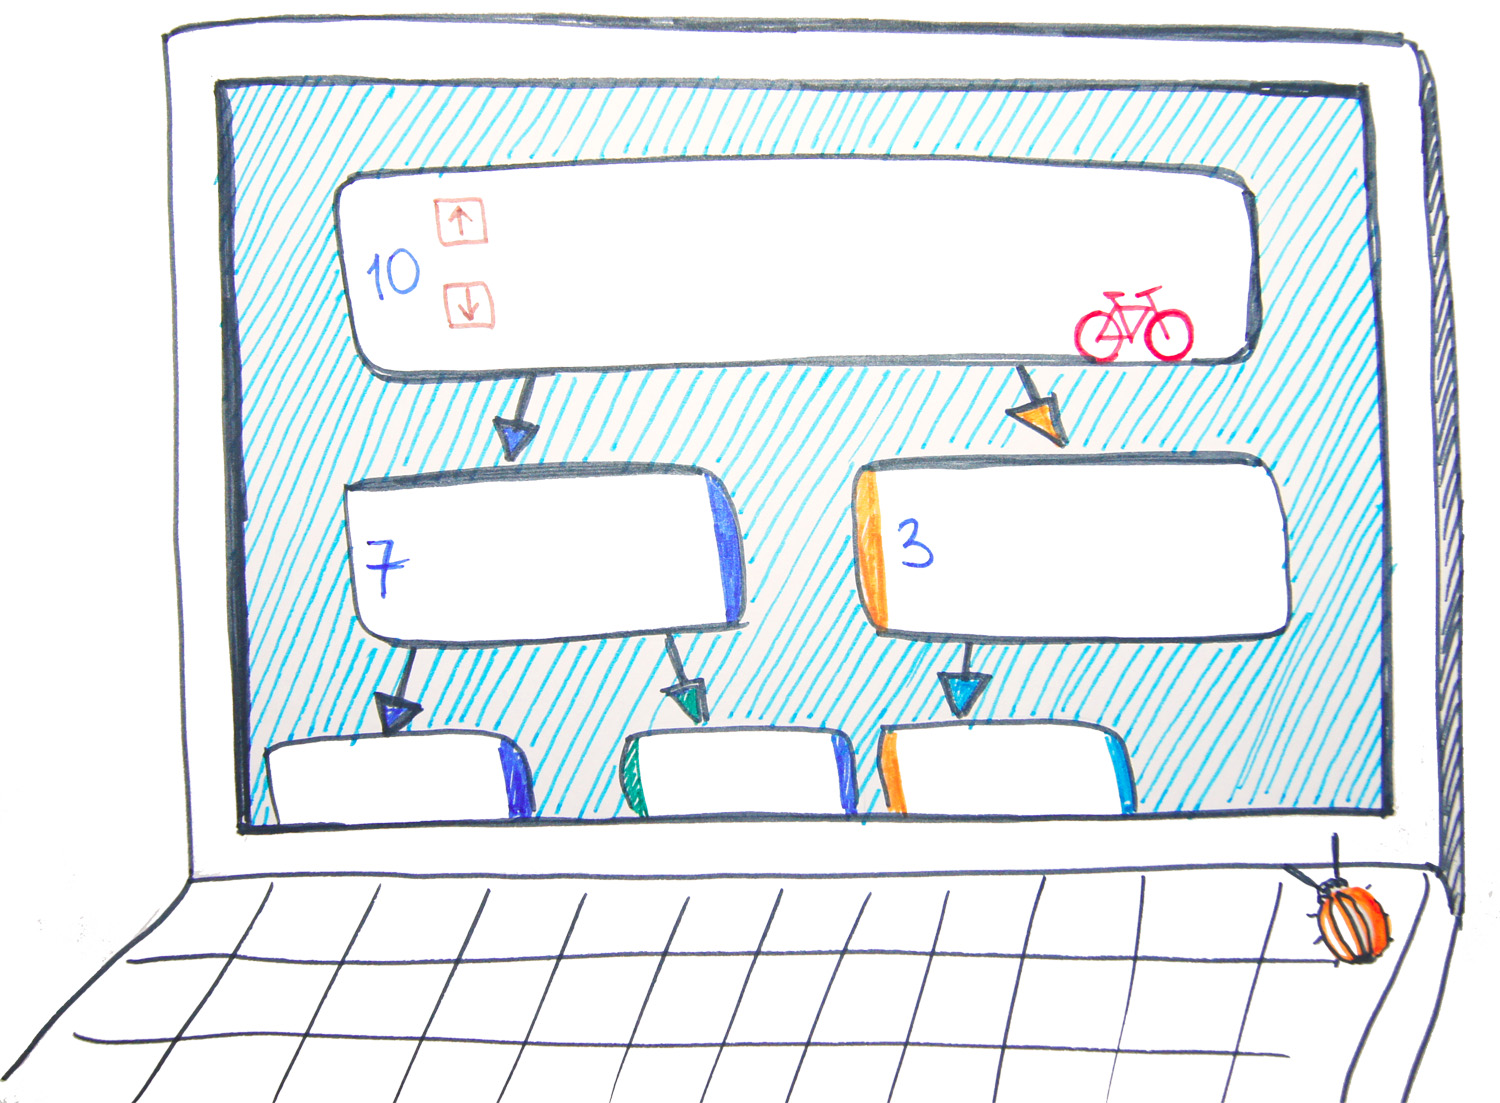 10
7
3